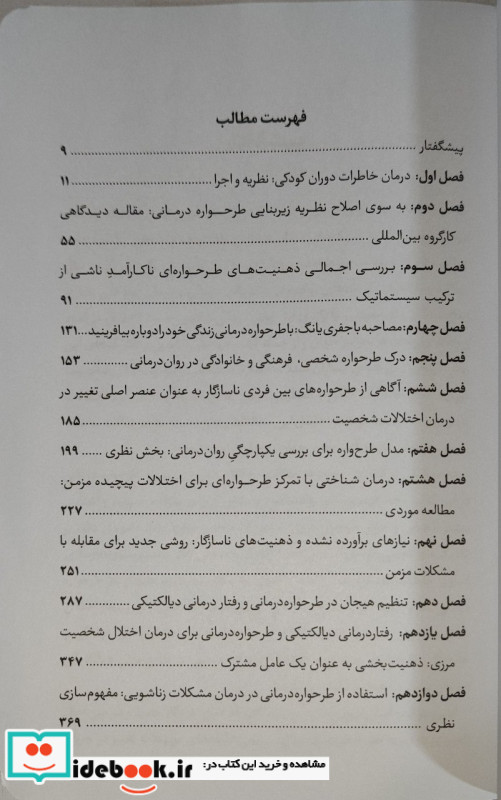 فهرست مطالب
پیشگفتار ........ ۹
فصل اول: درمان خاطرات دوران کودکی: نظریه و اجرا ........ ۱۱
فصل دوم: به سوی اصلاح نظریه زیربنایی طرحواره درمانی: مقاله دیدگاهی
کارگروه بین‌المللی ........ ۵۵
فصل سوم: بررسی اجمالی ذهنیت‌های طرحواره‌ای ناکارآمدِ ناشی از
ترکیب سیستماتیک ........ ۹۱
فصل چهارم: مصاحبه با جفری یانگ: با طرحواره درمانی زندگی خود را دوباره بیافرینید... ۱۳۱
فصل پنجم: درک طرحواره شخصی، فرهنگی و خانوادگی در روان‌درمانی ........ ۱۵۳
فصل ششم: آگاهی از طرحواره‌های بین فردی ناسازگار به عنوان عنصر اصلی تغییر در
درمان اختلالات شخصیت ........ ۱۸۵
فصل هفتم: مدل طرح‌واره برای بررسی یکپارچگیِ روان‌درمانی: بخش نظری ...... ۱۹۹
فصل هشتم: درمان شناختی با تمرکز طرحواره‌ای برای اختلالات پیچیده مزمن:
مطالعه موردی ........ ۲۲۷
فصل نهم: نیازهای برآورده نشده و ذهنیت‌های ناسازگار: روشی جدید برای مقابله با
مشکلات مزمن ........ ۲۵۱
فصل دهم: تنظیم هیجان در طرحواره‌درمانی و رفتار درمانی دیالکتیکی ........ ۲۸۷
فصل یازدهم: رفتاردرمانی دیالکتیکی و طرحواره‌درمانی برای درمان اختلال شخصیت
مرزی: ذهنیت‌بخشی به عنوان یک عامل مشترک ........ ۳۴۷
فصل دوازدهم: استفاده از طرحواره‌درمانی در درمان مشکلات زناشویی: مفهوم‌سازی
نظری ........ ۳۶۹
مشاهده و خرید این کتاب در:
idebook.ir